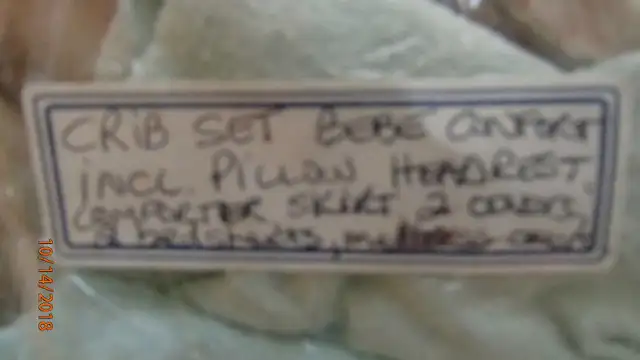 CRIB SET BEBE CONFORT
INCL. PILLOW HEADREST,
COMPORTER SKIRT 2 COVERS,
2
10/14/2018